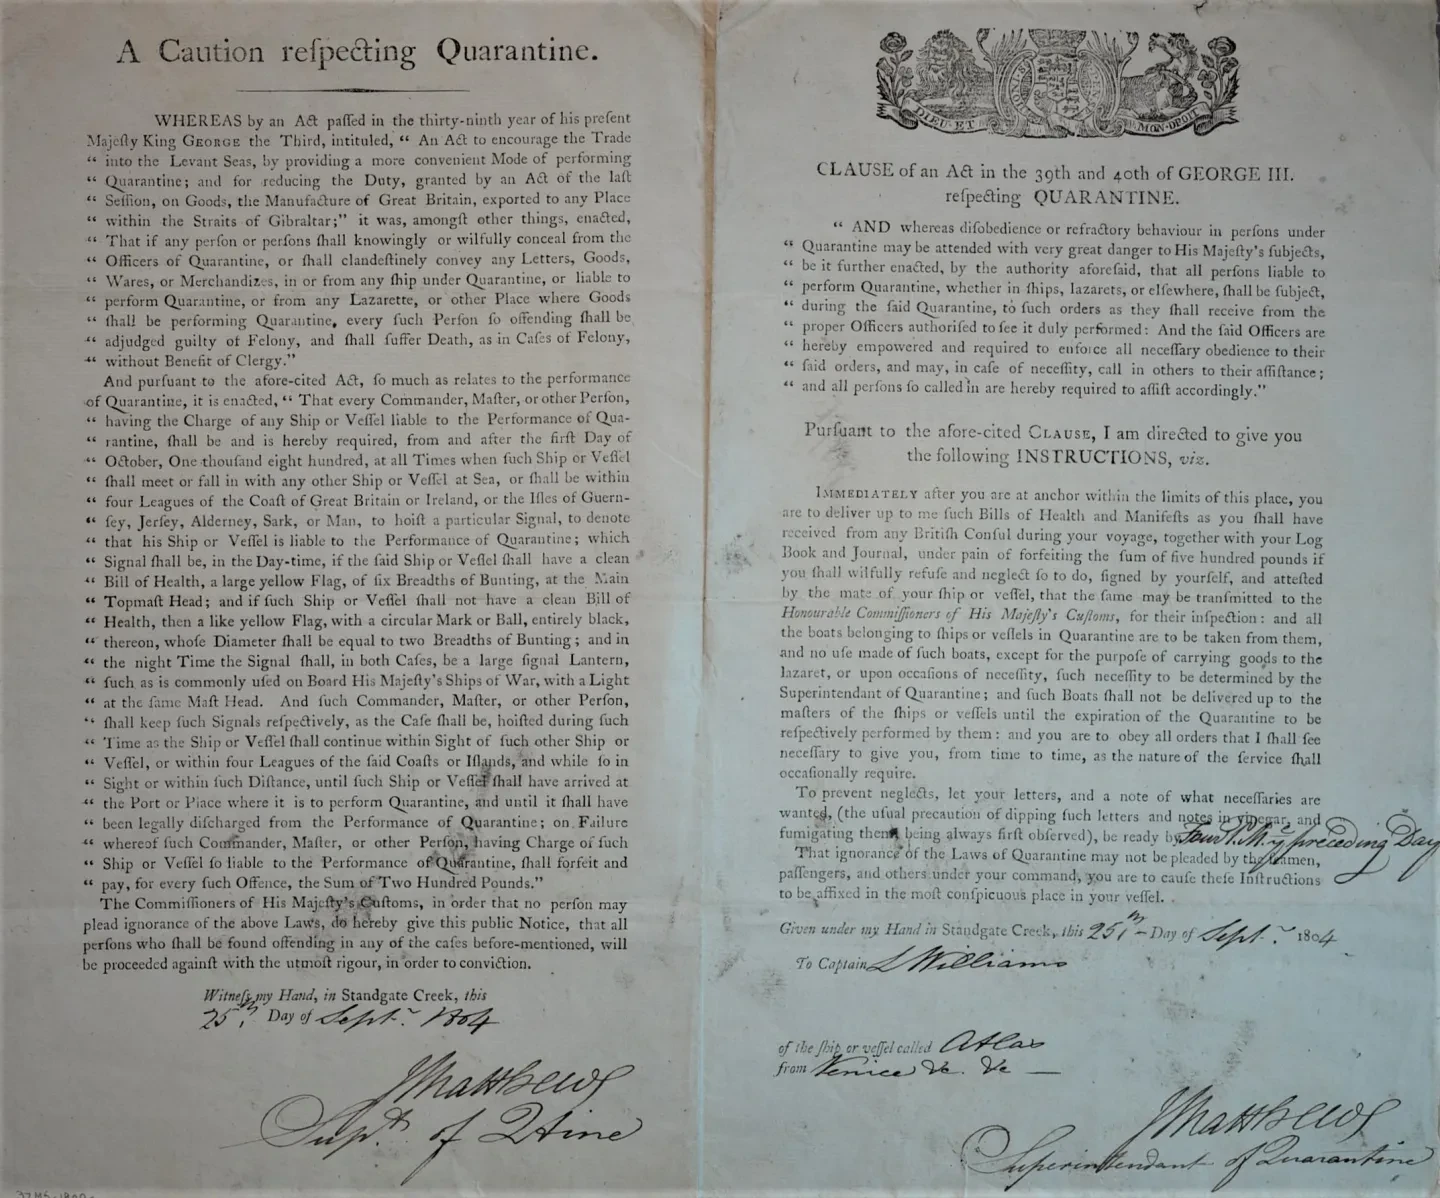 A Caution reſpecting Quarantine.
WHEREAS by an Act paſſed in the thirty-ninth year of his preſent
Majeſty King GEORGE the Third, intituled, “ An Act to encourage the Trade
“ into the Levant Seas, by providing a more convenient Mode of performing
“ Quarantine; and for reducing the Duty, granted by an Act of the laſt
“ Seſſion, on Goods, the Manufacture of Great Britain, exported to any Place
“ within the Straits of Gibraltar;” it was, amongſt other things, enacted,
“ That if any perſon or perſons ſhall knowingly or wilfully conceal from the
“ Officers of Quarantine, or ſhall clandeſtinely convey any Letters, Goods,
“ Wares, or Merchandizes, in or from any ſhip under Quarantine, or liable to
“ perform Quarantine, or from any Lazarette, or other Place where Goods
“ ſhall be performing Quarantine, every ſuch Perſon ſo offending ſhall be
“ adjudged guilty of Felony, and ſhall ſuffer Death, as in Caſes of Felony,
“ without Benefit of Clergy.”
And purſuant to the afore-cited Act, ſo much as relates to the performance
of Quarantine, it is enacted, “ That every Commander, Maſter, or other Perſon,
“ having the Charge of any Ship or Veſſel liable to the Performance of Qua-
“ rantine, ſhall be and is hereby required, from and after the firſt Day of
“ October, One thouſand eight hundred, at all Times when ſuch Ship or Veſſel
“ ſhall meet or fall in with any other Ship or Veſſel at Sea, or ſhall be within
“ four Leagues of the Coaſt of Great Britain or Ireland, or the Iſles of Guern-
“ ſey, Jerſey, Alderney, Sark, or Man, to hoiſt a particular Signal, to denote
“ that his Ship or Veſſel is liable to the Performance of Quarantine; which
“ Signal ſhall be, in the Day-time, if the ſaid Ship or Veſſel ſhall have a clean
“ Bill of Health, a large yellow Flag, of ſix Breadths of Bunting, at the Main
“ Topmaſt Head; and if ſuch Ship or Veſſel ſhall not have a clean Bill of
“ Health, then a like yellow Flag, with a circular Mark or Ball, entirely black,
“ thereon, whoſe Diameter ſhall be equal to two Breadths of Bunting; and in
“ the night Time the Signal ſhall, in both Caſes, be a large ſignal Lantern,
“ ſuch as is commonly uſed on Board His Majeſty's Ships of War, with a Light
“ at the ſame Maſt Head. And ſuch Commander, Maſter, or other Perſon,
“ ſhall keep ſuch Signals reſpectively, as the Caſe ſhall be, hoiſted during ſuch
“ Time as the Ship or Veſſel ſhall continue within Sight of ſuch other Ship or
“ Veſſel, or within four Leagues of the ſaid Coaſts or Iſlands, and while ſo in
“ Sight or within ſuch Diſtance, until ſuch Ship or Veſſel ſhall have arrived at
“ the Port or Place where it is to perform Quarantine, and until it ſhall have
“ been legally diſcharged from the Performance of Quarantine; on Failure
“ whereof ſuch Commander, Maſter, or other Perſon, having Charge of ſuch
“ Ship or Veſſel ſo liable to the Performance of Quarantine, ſhall forfeit and
“ pay, for every ſuch Offence, the Sum of Two Hundred Pounds.”
The Commiſſioners of His Majeſty's Cuſtoms, in order that no perſon may
plead ignorance of the above Laws, do hereby give this public Notice, that all
perſons who ſhall be found offending in any of the caſes before-mentioned, will
be proceeded againſt with the utmoſt rigour, in order to conviction.
Witneſs my Hand, in Standgate Creek, this
25th Day of Septr 1804
J Matthews
Supdt of Qtine
HONI
DIEU ET MON DROIT
CLAUSE of an Act in the 39th and 40th of GEORGE III.
reſpecting QUARANTINE.
“ AND whereas diſobedience or refractory behaviour in perſons under
“ Quarantine may be attended with very great danger to His Majeſty's ſubjects,
“ be it further enacted, by the authority aforeſaid, that all perſons liable to
“ perform Quarantine, whether in ſhips, lazarets, or elſewhere, ſhall be ſubject,
“ during the ſaid Quarantine, to ſuch orders as they ſhall receive from the
“ proper Officers authoriſed to ſee it duly performed: And the ſaid Officers are
“ hereby empowered and required to enforce all neceſſary obedience to their
“ ſaid orders, and may, in caſe of neceſſity, call in others to their aſſiſtance;
“ and all perſons ſo called in are hereby required to aſſiſt accordingly.”
Purſuant to the afore-cited CLAUSE, I am directed to give you
the following INSTRUCTIONS, viz.
IMMEDIATELY after you are at anchor within the limits of this place, you
are to deliver up to me ſuch Bills of Health and Manifeſts as you ſhall have
received from any Britiſh Conſul during your voyage, together with your Log
Book and Journal, under pain of forfeiting the ſum of five hundred pounds if
you ſhall wilfully refuſe and neglect ſo to do, ſigned by yourſelf, and atteſted
by the mate of your ſhip or veſſel, that the ſame may be tranſmitted to the
Honourable Commiſſioners of His Majeſty's Cuſtoms, for their inſpection: and all
the boats belonging to ſhips or veſſels in Quarantine are to be taken from them,
and no uſe made of ſuch boats, except for the purpoſe of carrying goods to the
lazaret, or upon occaſions of neceſſity, ſuch neceſſity to be determined by the
Superintendant of Quarantine; and ſuch Boats ſhall not be delivered up to the
maſters of the ſhips or veſſels until the expiration of the Quarantine to be
reſpectively performed by them: and you are to obey all orders that I ſhall ſee
neceſſary to give you, from time to time, as the nature of the ſervice ſhall
occaſionally require.
To prevent neglects, let your letters, and a note of what neceſſaries are
wanted, (the uſual precaution of dipping ſuch letters and notes in vinegar, and
fumigating them being always firſt obſerved), be ready by four P.M. ye preceding Day
That ignorance of the Laws of Quarantine may not be pleaded by the ſeamen,
paſſengers, and others under your command, you are to cauſe theſe Inſtructions
to be affixed in the moſt conſpicuous place in your veſſel.
Given under my Hand in Standgate Creek, this 25th Day of Septr 1804
To Captain L Williams
of the ſhip or veſſel called Atlas
from Venice &c. &c —
J Matthews
Superintendant of Quarantine